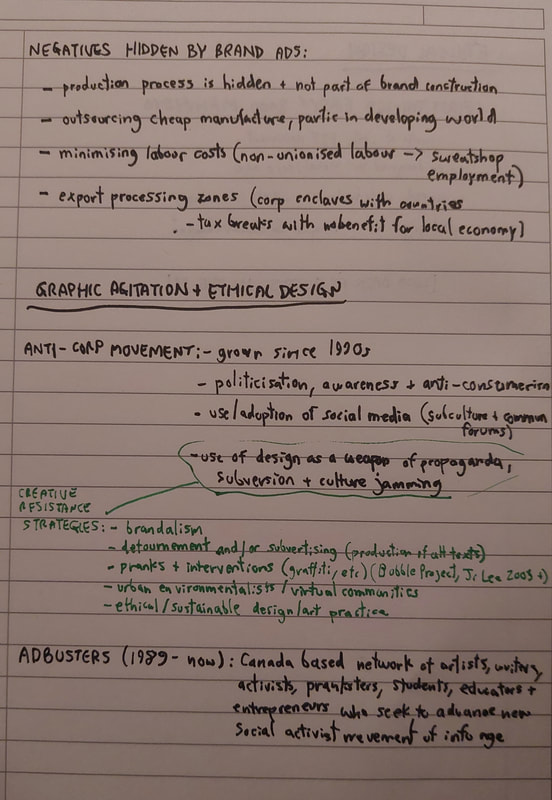 NEGATIVES HIDDEN BY BRAND ADS:
- production process is hidden + not part of brand construction
- outsourcing cheap manufacture, partic in developing world
- minimising labour costs (non-unionised labour -> sweatshop
employment)
- export processing zones (corp enclaves with countries
- tax breaks with no benefit for local economy)
GRAPHIC AGITATION + ETHICAL DESIGN
ANTI-CORP MOVEMENT: - grown since 1990s
- politicisation, awareness + anti-consumerism
- use/adoption of social media (subculture + commun
forums)
- use of design as a weapon of propaganda,
subversion + culture jamming
CREATIVE
RESISTANCE
STRATEGIES: - brandalism
- detournement and/or subvertising (production of alt texts)
- pranks + interventions (graffiti, etc) (Bubble Project, Ji Lee 2003 +)
- urban environmentalists / virtual communities
- ethical/sustainable design/art practice
ADBUSTERS (1989 - now): Canada based network of artists, writers,
activists, pranksters, students, educators +
entrepreneurs who seek to advance new
social activist movement of info age